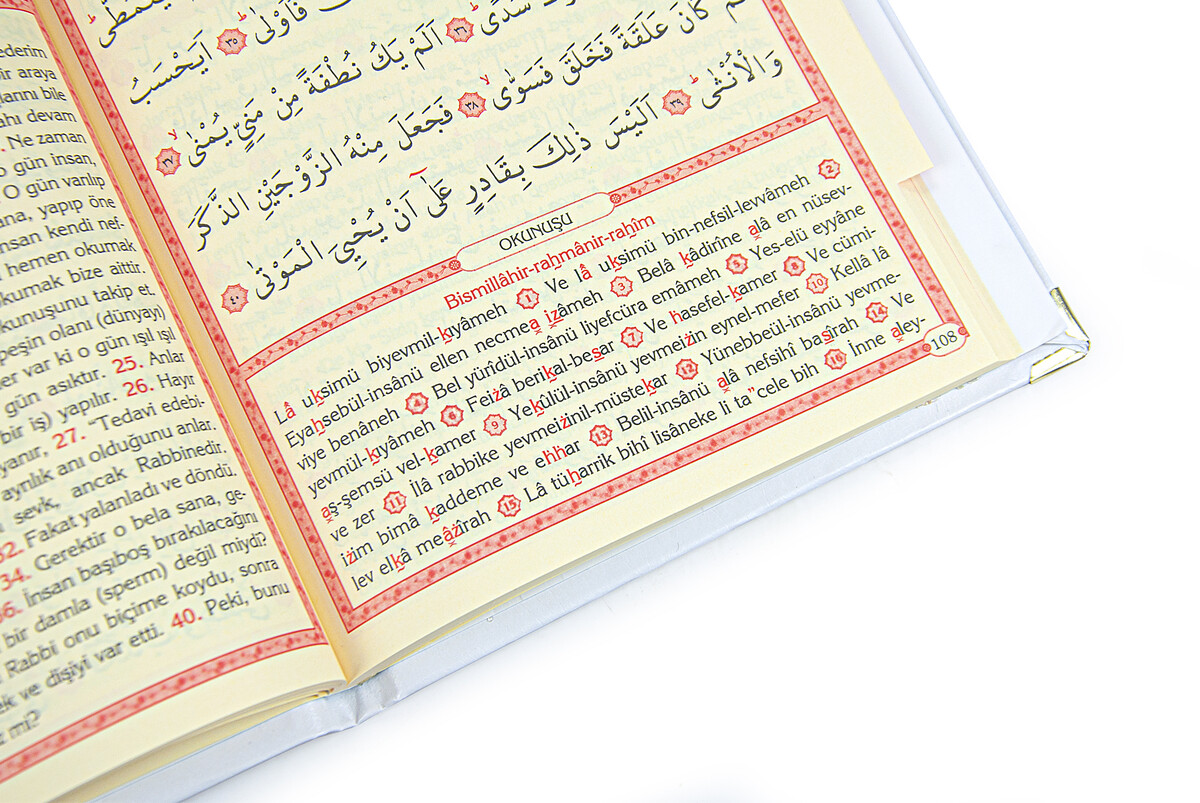 ederim
bir araya
larını bile
ahı devam
. Ne zaman
o gün insan,
O gün varılıp
ana, yapıp öne
insan kendi nef-
hemen okumak
kumak bize aittir.
kunuşunu takip et.
peşin olanı (dünyayı)
er var ki o gün ışıl ışıl
gün asıktır. 25. Anlar
bir iş) yapılır. 26. Hayır
yanır, 27. “Tedavi edebi-
ayrılık anı olduğunu anlar.
sevk, ancak Rabbinedir.
32. Fakat yalanladı ve döndü.
34. Gerektir o bela sana, ge-
36. İnsan başıboş bırakılacağını
bir damla (sperm) değil miydi?
Rabbi onu biçime koydu, sonra
ek ve dişiyi var etti. 40. Peki, bunu
mi?
يَتَمَطّٰىۜ
فَاَوْلٰىۜ ﴿٣٥﴾ اَيَحْسَبُ
سُدًىۜ ﴿٣٦﴾ اَلَمْ يَكُ نُطْفَةً مِنْ مَنِيٍّ يُمْنٰىۙ ﴿٣٧﴾
كَانَ عَلَقَةً فَخَلَقَ فَسَوّٰىۙ ﴿٣٨﴾ فَجَعَلَ مِنْهُ الزَّوْجَيْنِ الذَّكَرَ
وَالْاُنْثٰىۜ ﴿٣٩﴾ اَلَيْسَ ذٰلِكَ بِقَادِرٍ عَلٰٓى اَنْ يُحْيِيَ الْمَوْتٰى ﴿٤٠﴾
OKUNUŞU
Bismillâhir-rahmânir-rahîm
Lâ uksimü biyevmil-kıyâmeh 1 Ve lâ uksimü bin-nefsil-levvâmeh 2
Eyahsebül-insânü ellen necmea izâmeh 3 Belâ kâdirîne alâ en nüsev-
viye benâneh 4 Bel yürîdül-insânü liyefcüra emâmeh 5 Yes-elü eyyâne
yevmül-kıyâmeh 6 Feiżâ berikal-besar 7 Ve hasefel-kamer 8 Ve cümi-
aş-şemsü vel-kamer 9 Yekûlül-insânü yevmeiżin eynel-mefer 10 Kellâ lâ
ve zer 11 İlâ rabbike yevmeiżinil-müstekar 12 Yünebbeül-insânü yevme-
iżim bimâ kaddeme ve ehhar 13 Belil-insânü alâ nefsihî basîrah 14 Ve
lev elkâ meâżîrah 15 Lâ tüharrik bihî lisâneke li ta”cele bih 16 İnne aley-
108